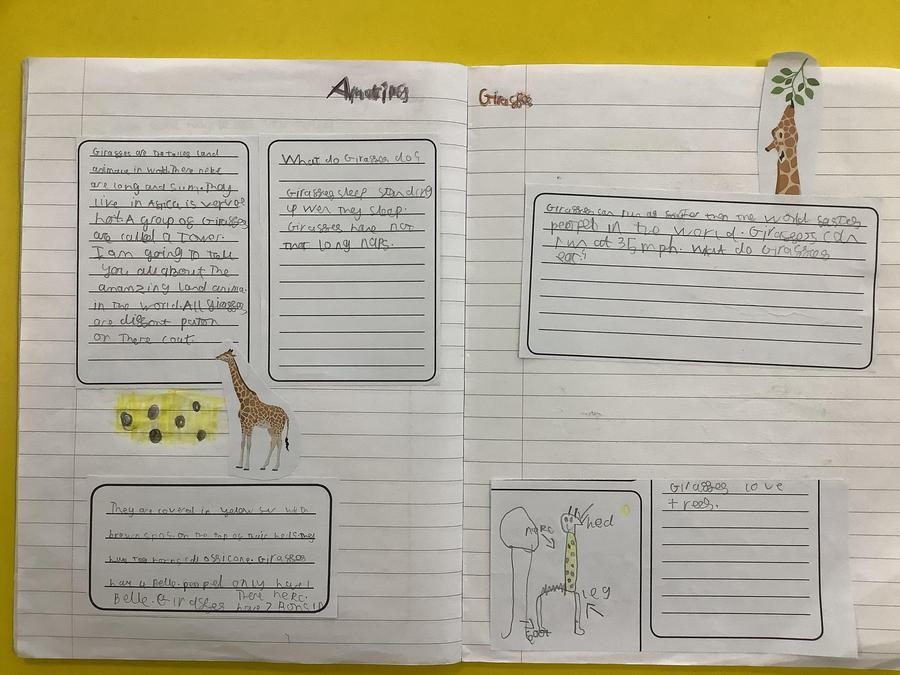 Amazing
Giraffes
Giraffes are the talles land
animale in world. There neks
are long and slim. They
live in Africa is verve
hot. A group of Giraffes
are called a Tower.
I am going to tall
you all about the
ananzing land anima.
in the world. All giraffes
are diffrent patton
on there coat.
What do Giraffes do?
Giraffes sleep standing
up wen they sleep.
Giraffes have not
that long naps.
They are covered in yelow fur with
brown spos on the top of their heds they
have too horns
Giraffes
have a Belle. peopel only have 1
Belle. Giraffes have 7 Bons in
There necs.
Giraffes can run as
than the world
peopel in the world. Giraffes can
run at 35 mph. What do Giraffes
eat?
neck
hed
leg
foot
Giraffes love
trees.